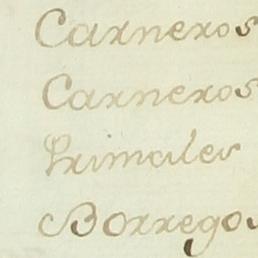 Carneros
Carneros
Primales
Borregos